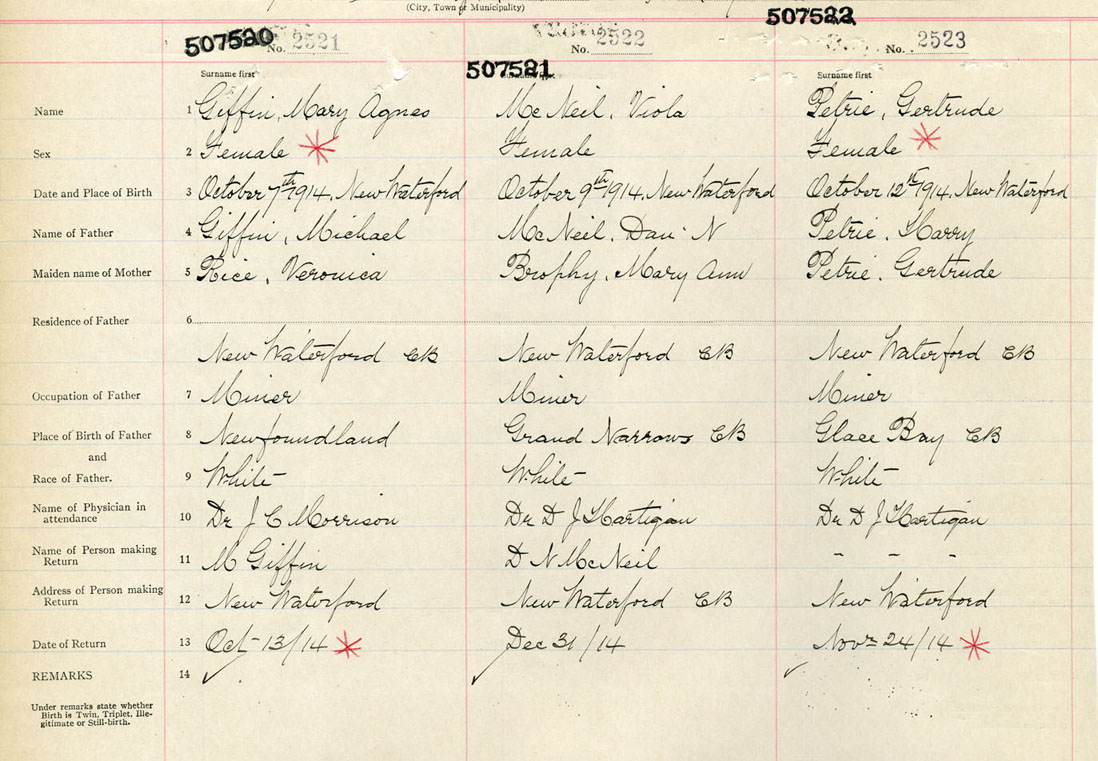 (City, Town or Municipality)
507520 No. 2521
507521 No. 2522
507522 No. 2523
Surname first Surname first Surname first
Name 1 Giffin, Mary Agnes McNeil, Viola Petrie, Gertrude
Sex 2 Female Female Female
Date and Place of Birth 3 October 7th 1914. New Waterford October 9th 1914. New Waterford October 12th 1914. New Waterford
Name of Father 4 Giffin, Michael McNeil. Dan. N Petrie. Harry
Maiden name of Mother 5 Rice, Veronica Brophy, Mary Ann Petrie. Gertrude
Residence of Father 6
New Waterford CB New Waterford CB New Waterford CB
Occupation of Father 7 Miner Miner Miner
Place of Birth of Father 8 Newfoundland Grand Narrows CB Glace Bay CB
and
Race of Father. 9 White White White
Name of Physician in
attendance 10 Dr J C Morrison Dr D J Hartigan Dr D J Hartigan
Name of Person making
Return 11 M Giffin D N McNeil - - -
Address of Person making
Return 12 New Waterford New Waterford CB New Waterford
Date of Return 13 Oct 13/14 Dec 31/14 Novr 24/14
REMARKS 14
Under remarks state whether
Birth is Twin, Triplet, Ille-
gitimate or Still-birth.